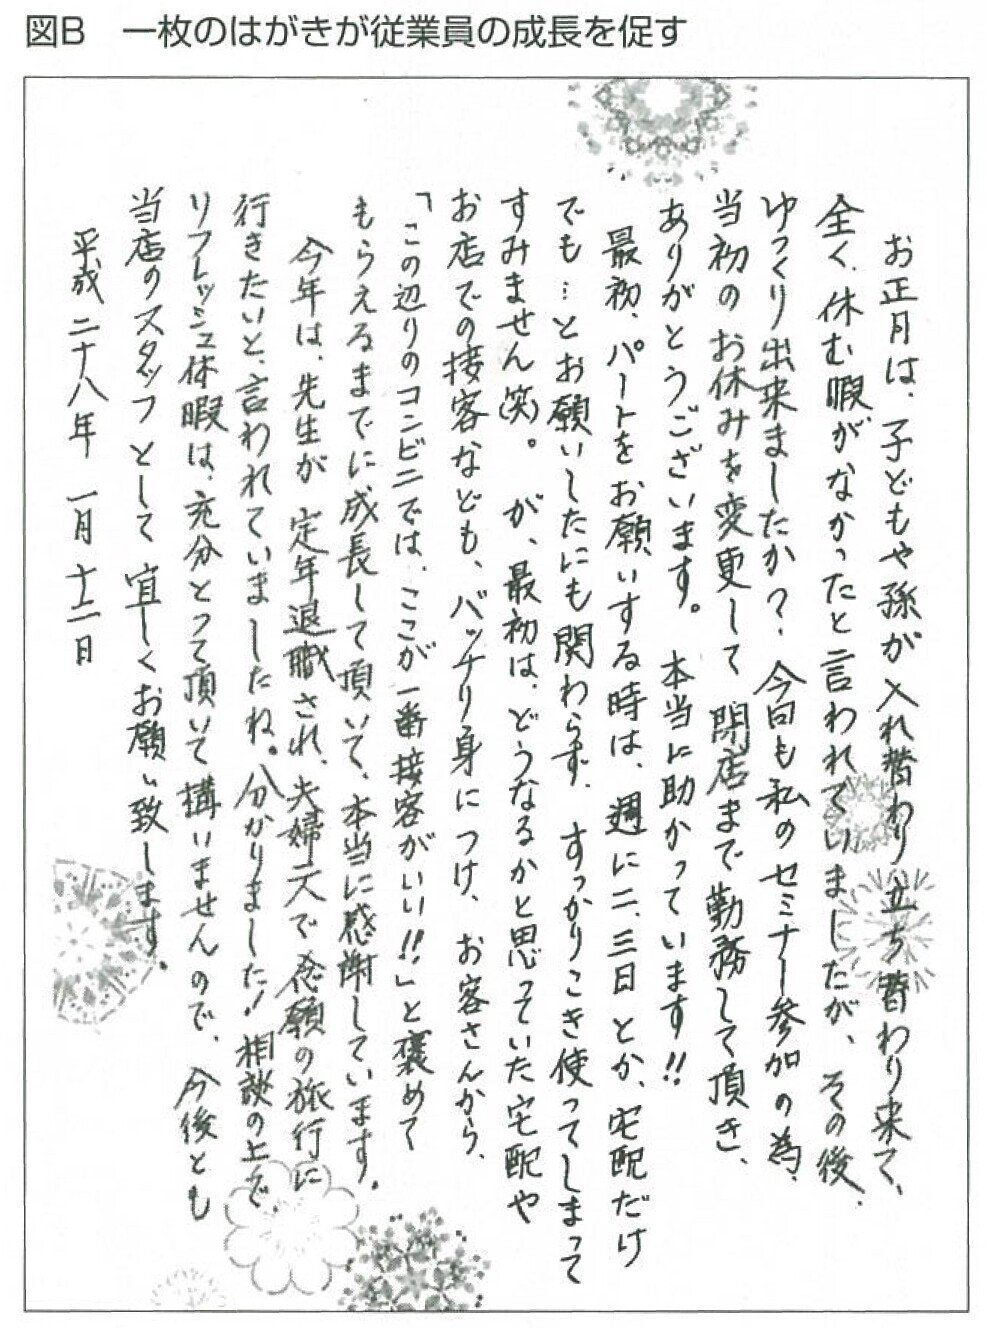 図B 一枚のはがきが従業員の成長を促す
お正月は、子どもや孫が入れ替わり立ち替わり来て、
全く、休む暇がなかったと言われていましたが、その後、
ゆっくり出来ましたか?今回も私のセミナー参加の為、
当初のお休みを変更して閉店まで勤務して頂き、
ありがとうございます。本当に助かっています!!
最初、パートをお願いする時は、週に二、三日とか、宅配だけ
でも…とお願いしたにも関わらず、すっかりこき使ってしまって
すみません(笑)。が、最初は、どうなるかと思っていた宅配や
お店での接客なども、バッチリ身につけ、お客さんから、
「この辺りのコンビニでは、ここが一番接客がいい!!」と褒めて
もらえるまでに成長して頂いて、本当に感謝しています。
今年は、先生が定年退職され、夫婦二人で念願の旅行に
行きたいと、言われていましたね。分かりました!相談の上で
リフレッシュ休暇は、充分とって頂いて構いませんので、今後とも
当店のスタッフとして宜しくお願い致します。
平成二十八年 一月 十二日